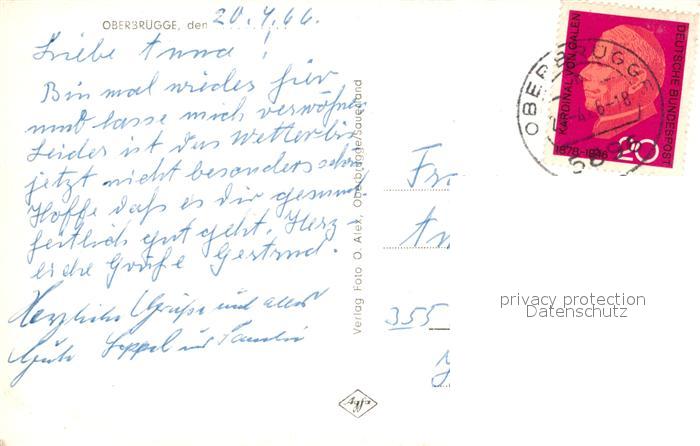 OBERBRÜGGE, den 20.4.66.
Liebe Anna!
Bin mal wieder hier
und lasse mich verwöhnen
Leider ist das Wetter bis
jetzt nicht besonders schön
Hoffe daß es dir gesund-
heitlich gut geht. Herz-
liche Grüße Gertrud.
Herzliche Grüße und alles
Gute Seppel und Familie
Verlag Foto O. Alex, Oberbrügge/Sauerland
Agfa
DEUTSCHE BUNDESPOST
KARDINAL VON GALEN
1878-1946
20
OBERBRÜGGE
Fr
An
355
privacy protection
Datenschutz